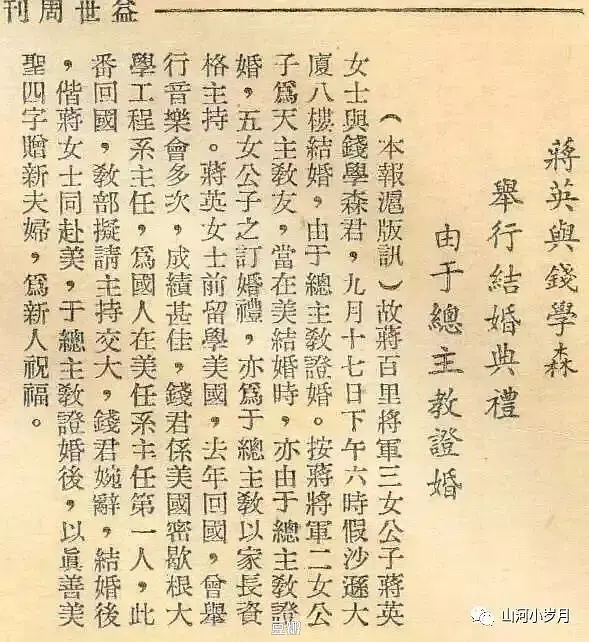 益世周刊
蔣英與錢學森
舉行結婚典禮
由于總主教證婚
（本報滬版訊）故蔣百里將軍三女公子蔣英
女士與錢學森君，九月十七日下午六時假沙遜大
廈八樓結婚，由于總主教證婚。按蔣將軍二女公
子爲天主教友，當在美結婚時，亦由于總主教證
婚，五女公子之訂婚禮，亦爲于總主教以家長資
格主持。蔣英女士前留學美國，去年回國，曾舉
行音樂會多次，成績甚佳，錢君係美國密歇根大
學工程系主任，爲國人在美任系主任第一人，此
番回國，教部擬請主持交大，錢君婉辭，結婚後
，偕蔣女士同赴美，于總主教證婚後，以眞善美
聖四字贈新夫婦，爲新人祝福。
豆瓣
山河小岁月